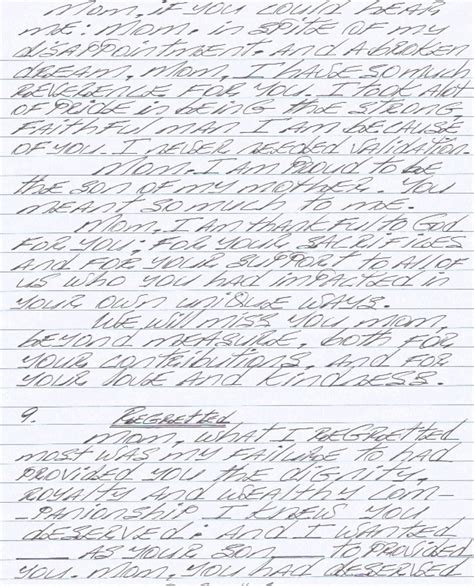 Mom, if you could hear
me: Mom, in spite of my
disappointment. And a broken
dream, Mom, I have so much
reverence for you. I took alot
of pride in being the strong,
faithful man I am because
of you. I never needed validation.
Mom, I am proud to be
the son of my mother. You
meant so much to me.
Mom, I am thankful to God
for you; for your sacrifices
and for your support to all of
us who you had impacted in
your own unique ways.
We will miss you mom,
beyond measure. both for
your contributions, and for
your love and kindness.
9. Regretted
Mom, what I regretted
most was my failure to had
provided you the dignity,
royalty and wealthy com-
panionship I knews you
deserved: and I wanted
as your son to provided
you. Mom, you had deserved